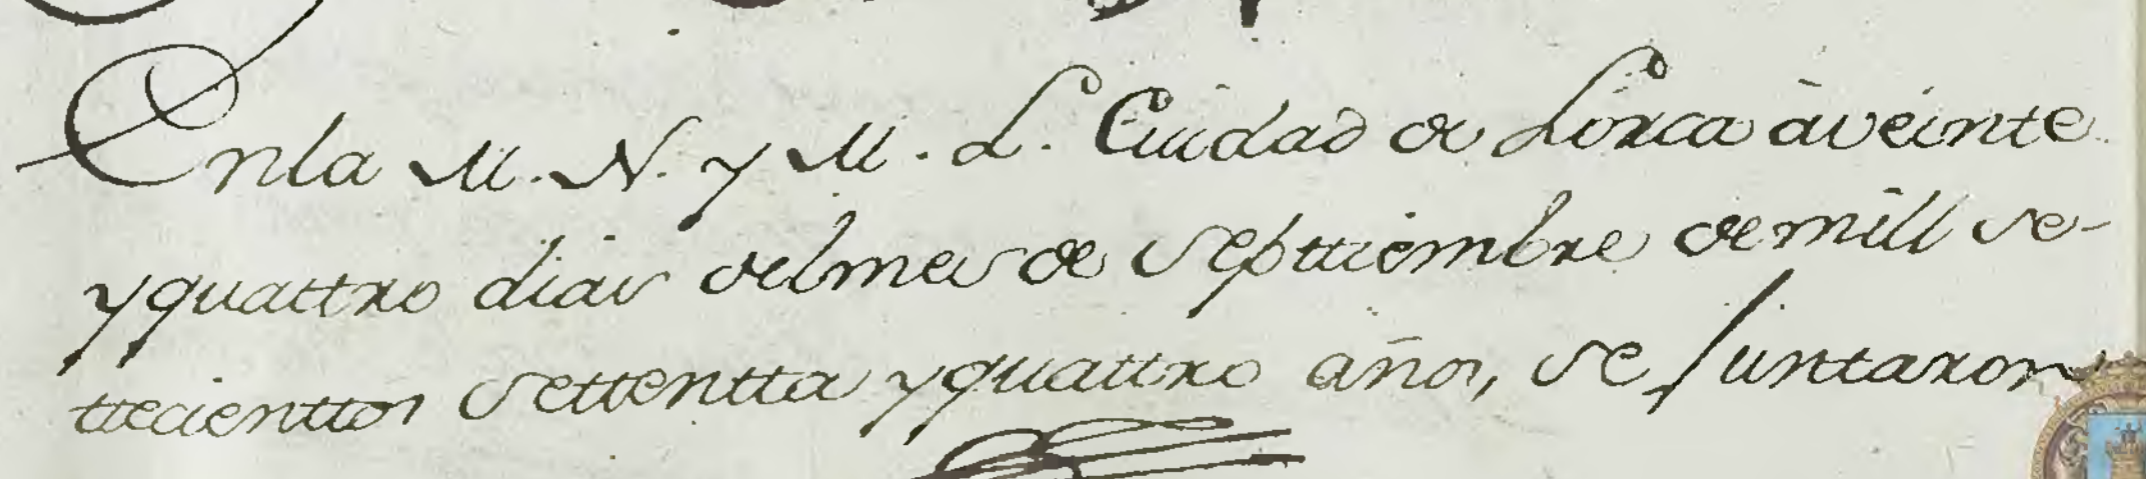 Enla M. N. y M. L. Ciudad de Lorca à veinte
y quattro dias del mes de Septtiembre de mill se-
ttecienttos settentta y quattro años, se Juntaron